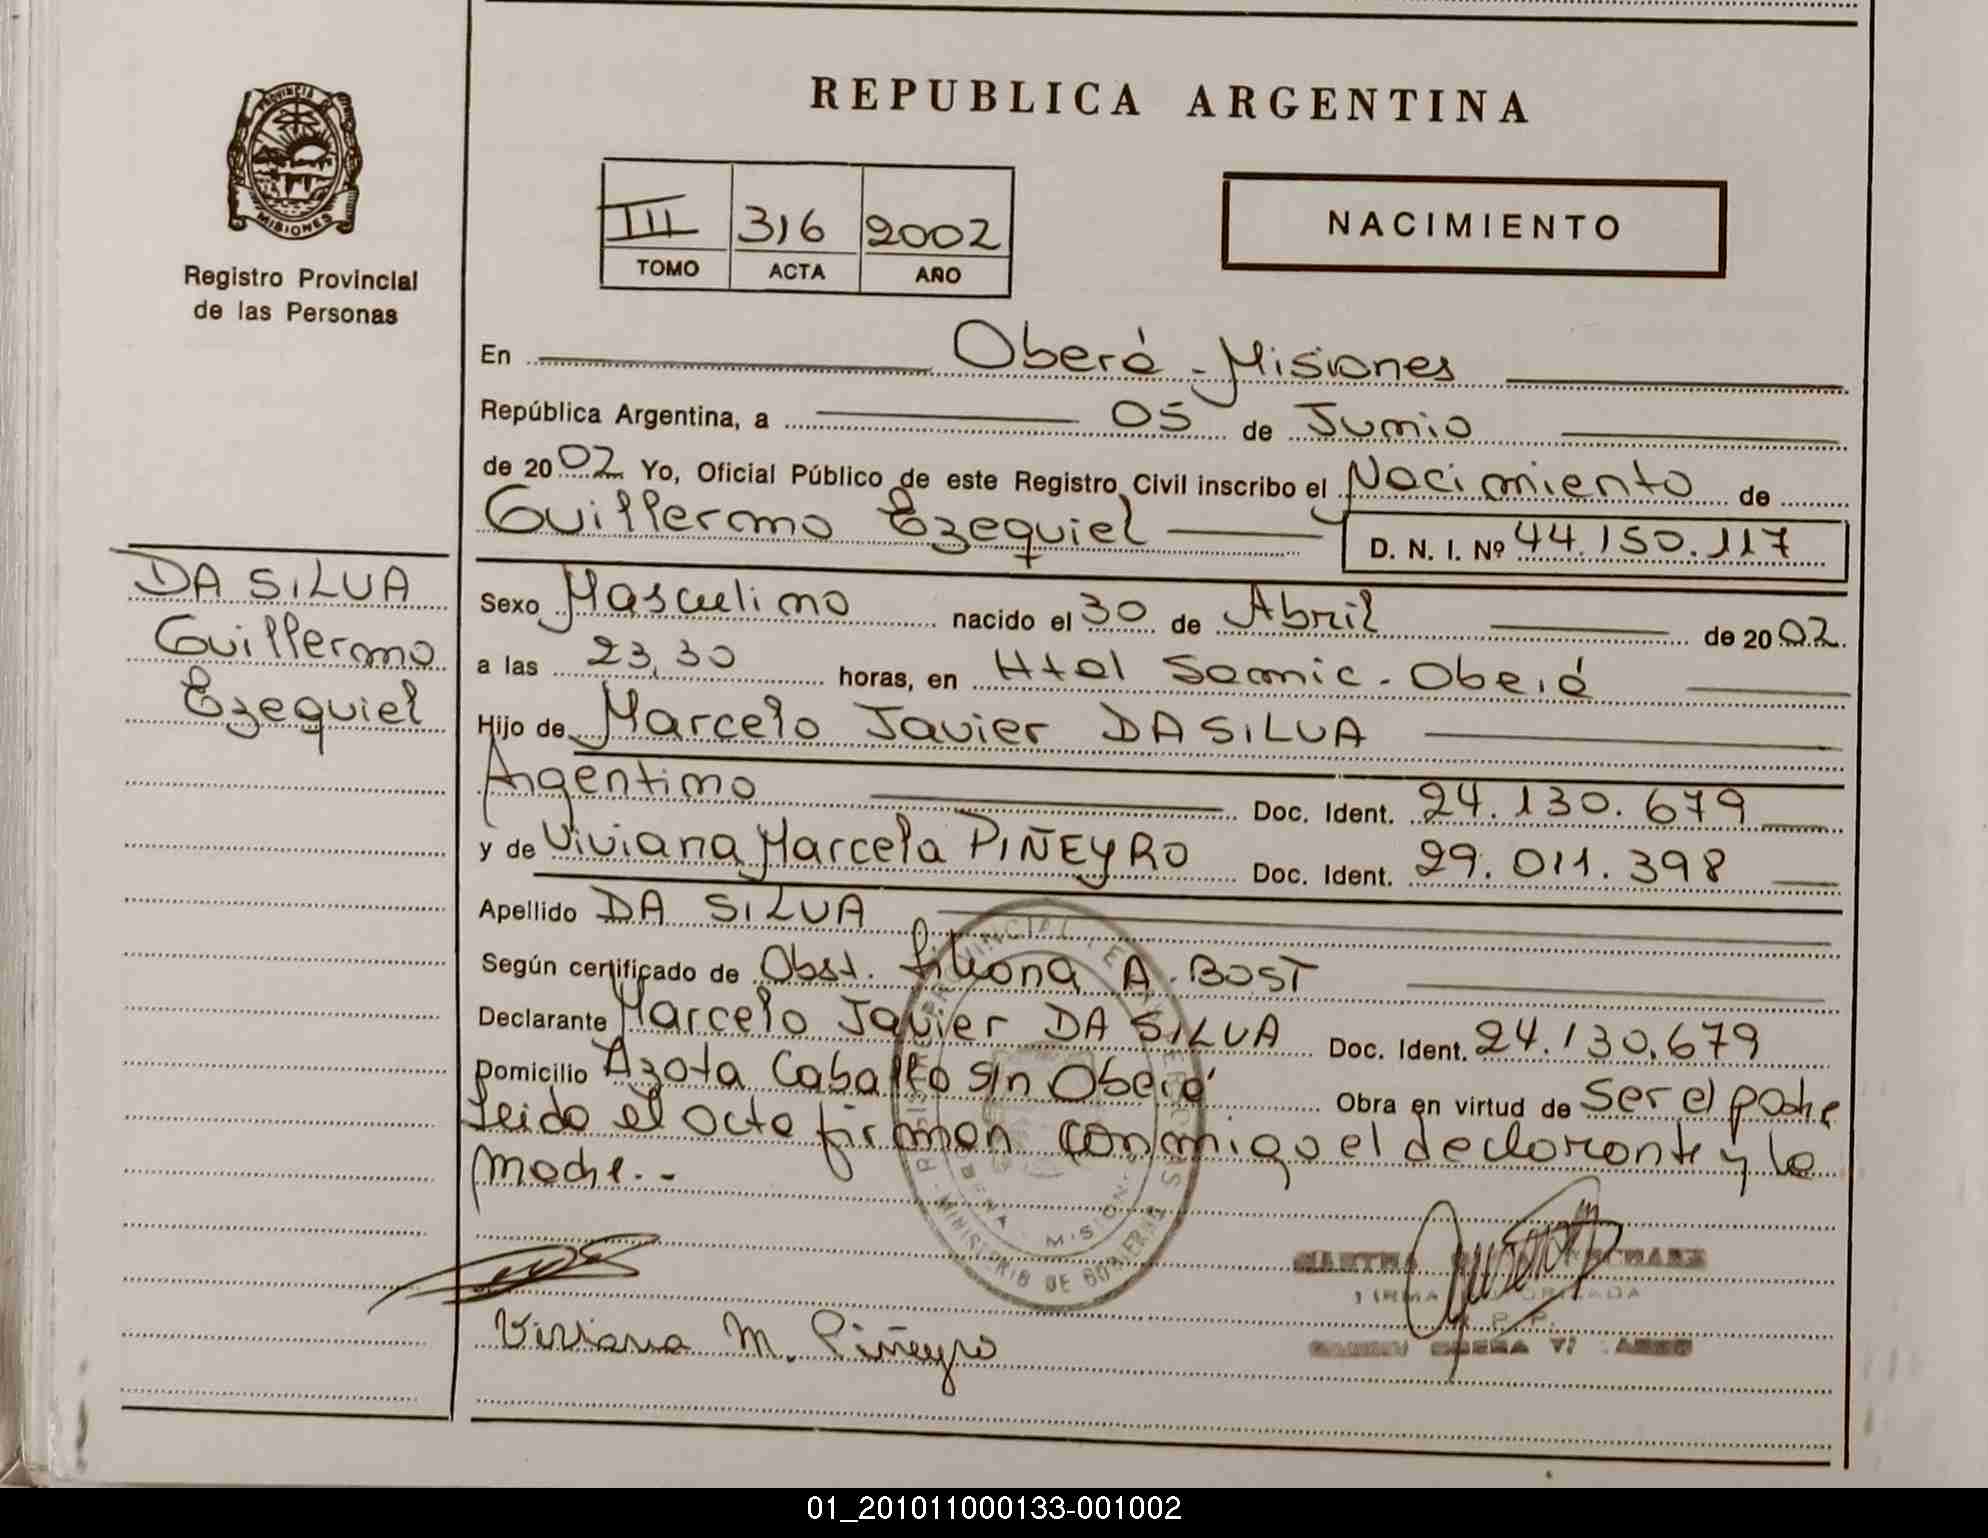 REPUBLICA ARGENTINA
PROVINCIA DE
MISIONES
Registro Provincial
de las Personas
III 316 2002
TOMO ACTA AÑO
NACIMIENTO
En Oberá - Misiones
República Argentina, a 05 de Junio
de 2002 Yo, Oficial Público de este Registro Civil inscribo el Nacimiento de
Guillermo Ezequiel D. N. I. Nº 44.150.117
DA SILVA
Guillermo
Ezequiel
Sexo Masculino nacido el 30 de Abril de 2002.
a las 23,30 horas, en Htal Samic - Oberá
Hijo de Marcelo Javier DA SILVA
Argentino Doc. Ident. 24.130.679
y de Viviana Marcela PIÑEYRO Doc. Ident. 29.011.398
Apellido DA SILVA
Según certificado de Obst. A. BOST
Declarante Marcelo Javier DA SILVA Doc. Ident. 24.130.679
Domicilio Azota Caballo s/n Oberá Obra en virtud de ser el padre
Leido el acta firman conmigo el declarante y la
madre.-
MINISTERIO DE GOBIERNO
Viviana M. Piñeyro
MARTHA
FIRMA AUTORIZADA
R. P. P.
01_201011000133-001002